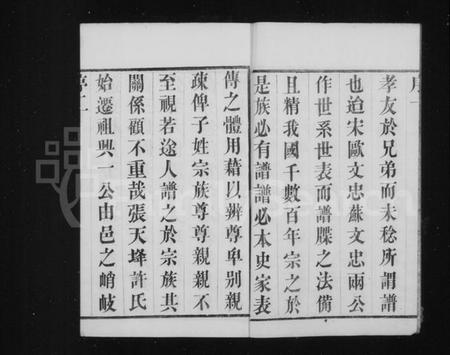 序一
孝友於兄弟而未稔所謂譜
也迨宋歐文忠蘇文忠兩公
作世系世表而譜牒之法備
且精我國千數百年宗之於
是族必有譜譜必本史家表
傳之體用藉以辨尊卑别親
疎俾子姓宗族尊尊親親不
至視若途人譜之於宗族其
關係顧不重哉張天埄許氏
始遷祖興一公由邑之峭岐